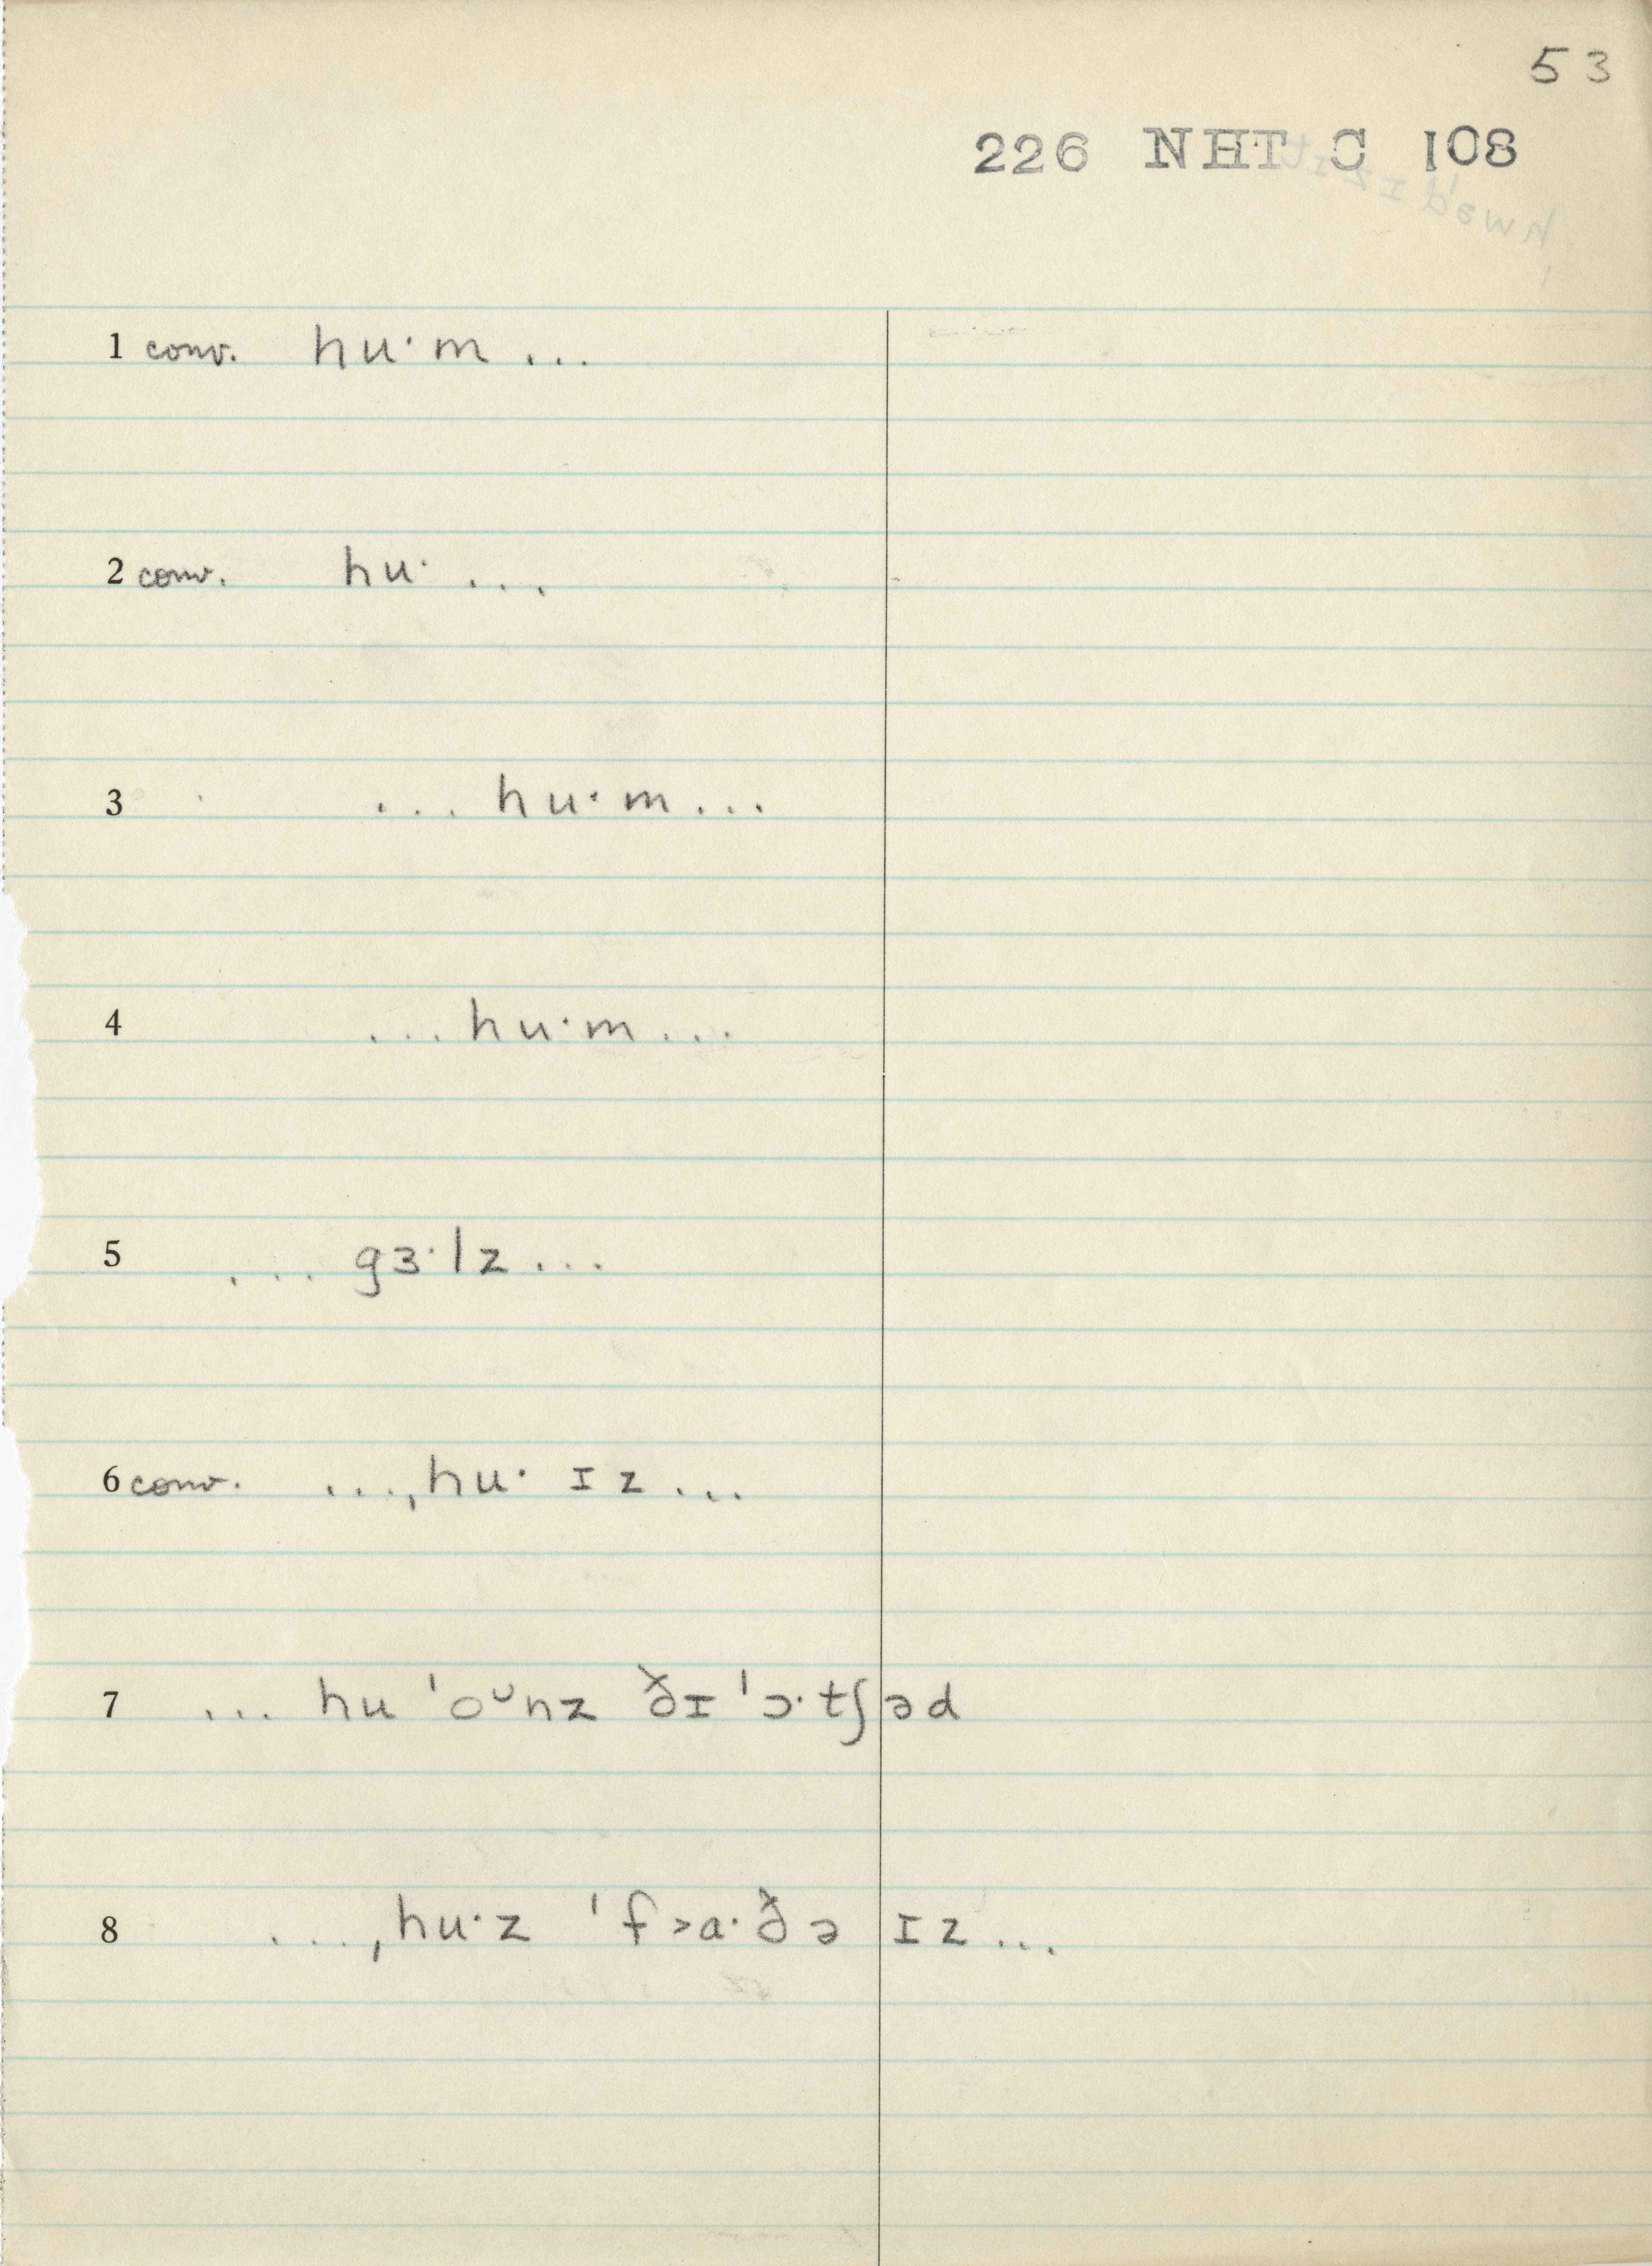 53
226 NHT C 108
1 conv. hu·m ...
2 conv. hu· ...
3 ... hu·m ...
4 ... hu·m ...
5 ... gɜ·lz ...
6 conv. ...ˌhu· ɪz ...
7 ... hu ˈoᴗnz ðɪ ˈɔ·tʃəd
8 ...ˌhu·z ˈf˃a·ðə ɪz ...